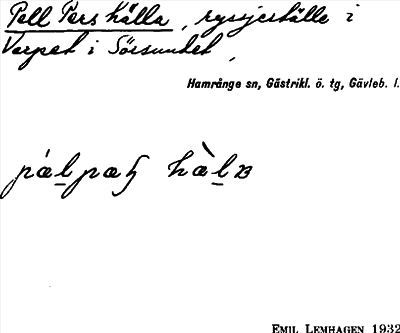 Pell Pers källa, ryssjeställe i
Varpet i Sörsundet,
Hamrånge sn, Gästrikl. ö. tg, Gävleb. l.
EMIL LEMHAGEN 1932